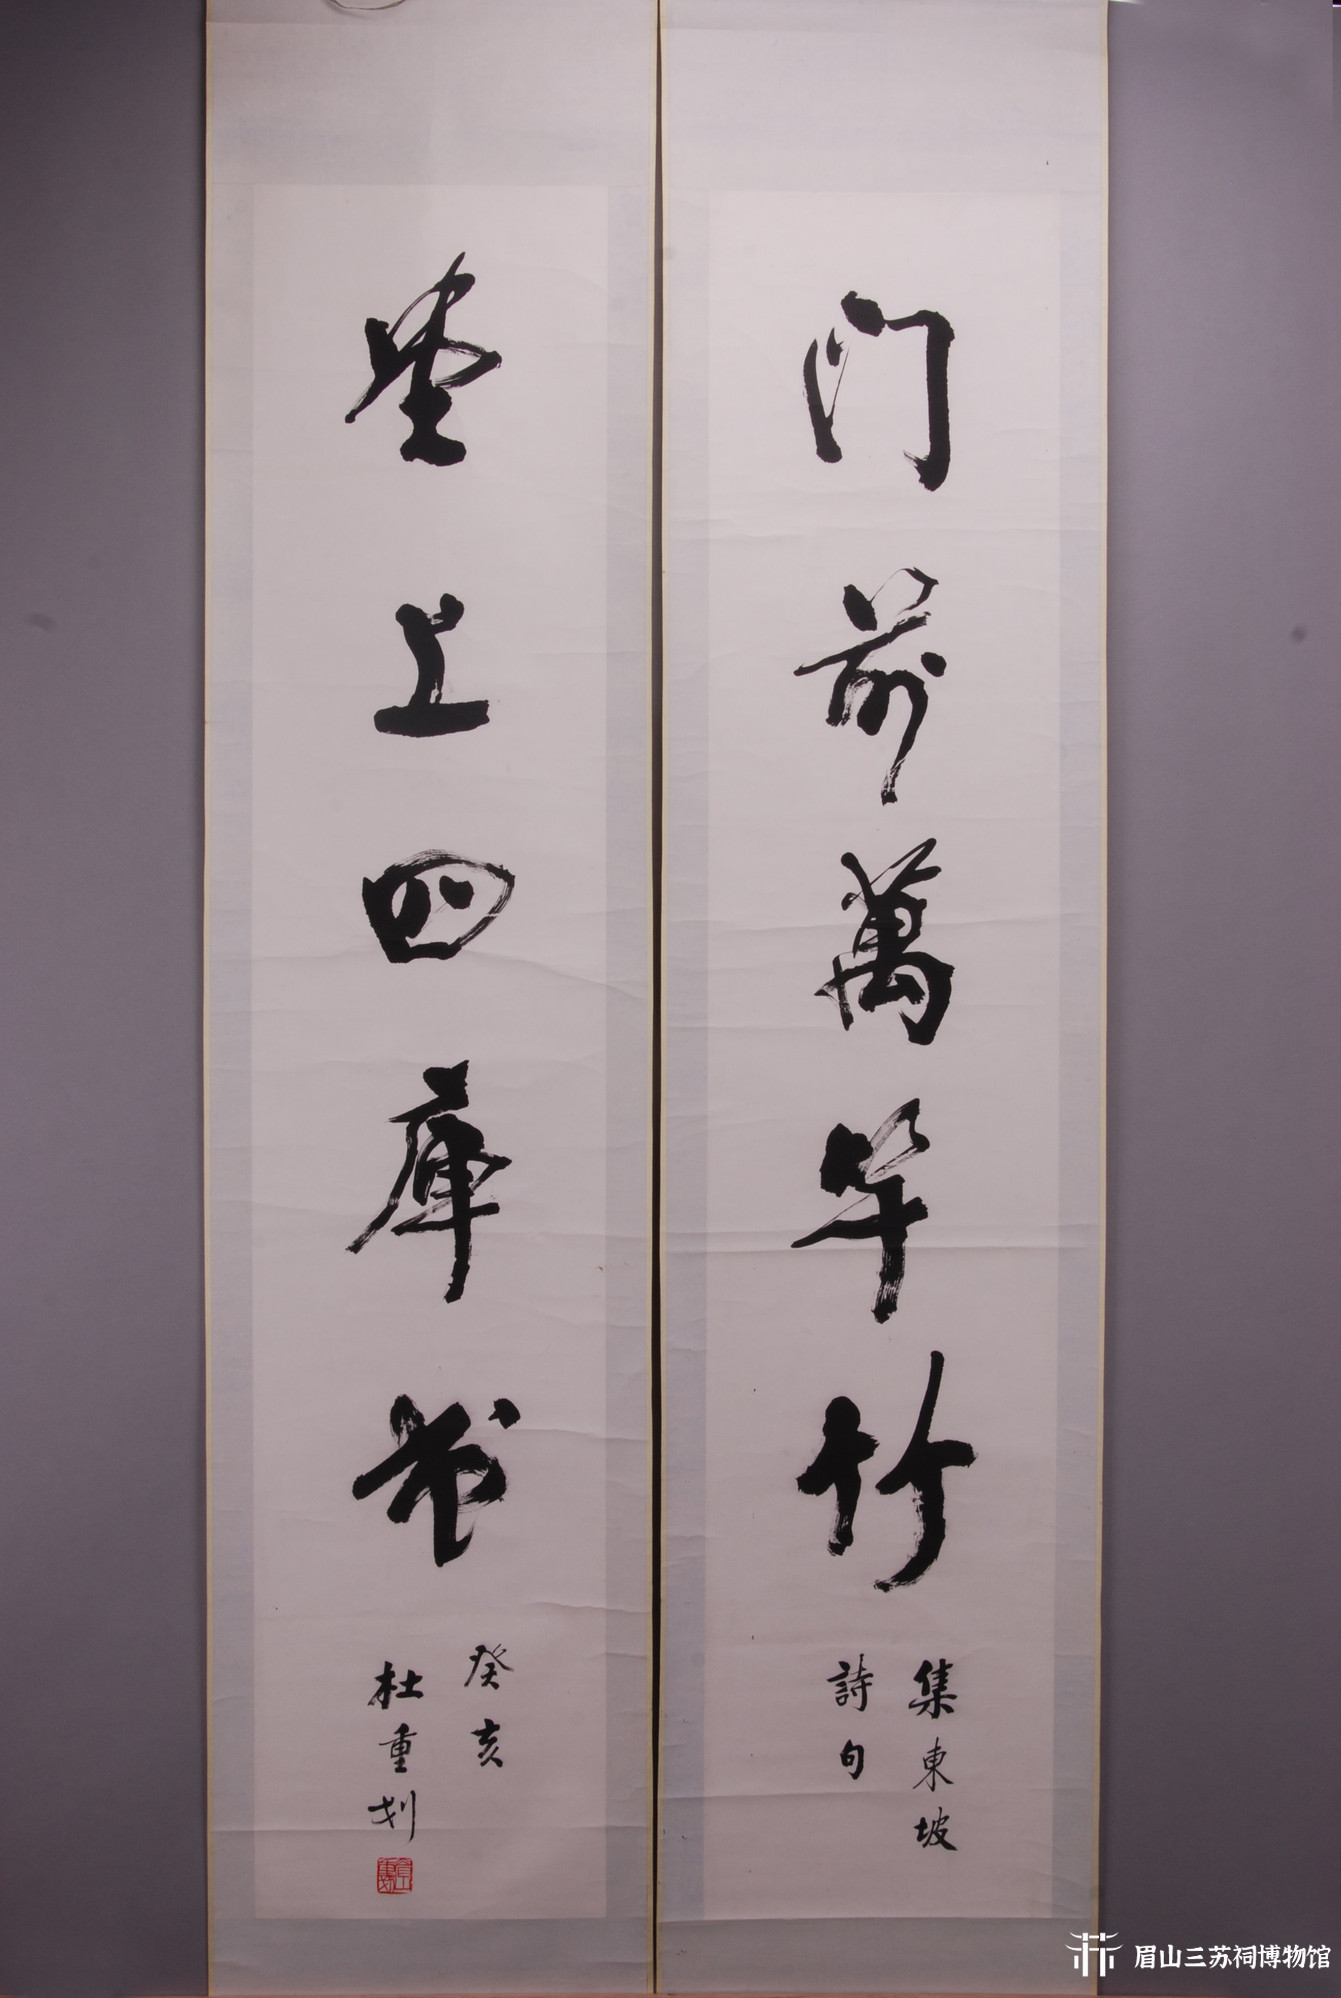 门前萬竿竹
集東坡
詩句
堂上四庫书
癸亥
杜重划
眉山三苏祠博物馆